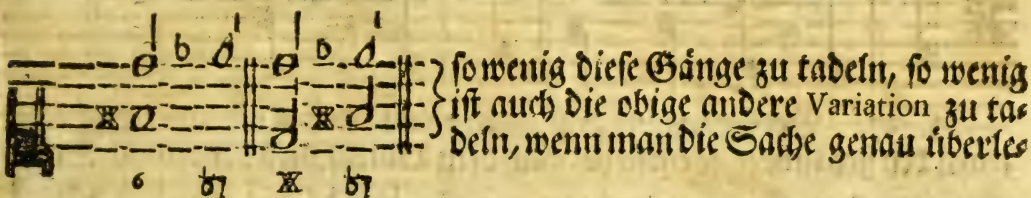 so wenig diese Gänge zu tadeln, so wenig
ist auch die obige andere Variation zu ta⸗
deln, wenn man die Sache genau überle⸗
6 b7 b7